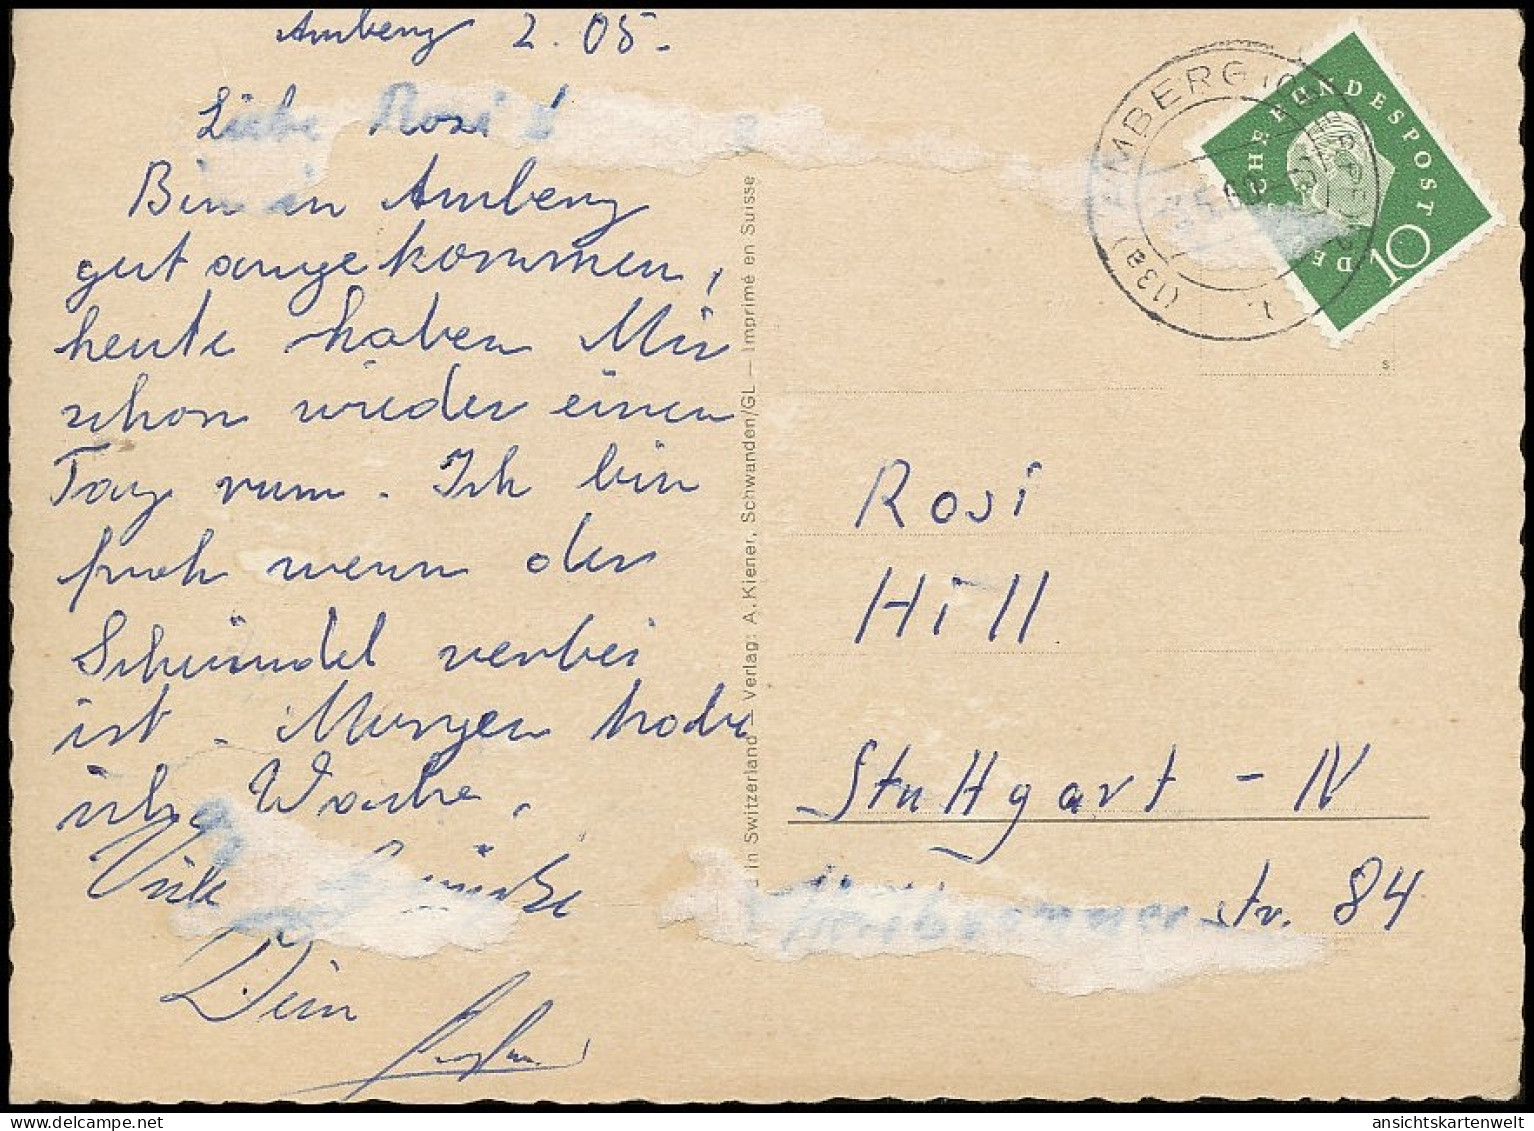 Amberg 2. 05.
Liebe Rosi!
Bin in Amberg
gut angekommen,
heute haben Mir
schon wieder einen
Tag rum. Ich bin
froh wenn der
Schwindel verbei
ist. Morgen habe
ich Wache.
Viele Grüße
Dein
in Switzerland — Verlag: A. Kiener, Schwanden/GL — Imprimé en Suisse
(13a) AMBERG (OBERPF)
DEUTSCHE BUNDESPOST
10
s
Rosi
Hill
Stuttgart - N
str. 84
ansichtskartenwelt